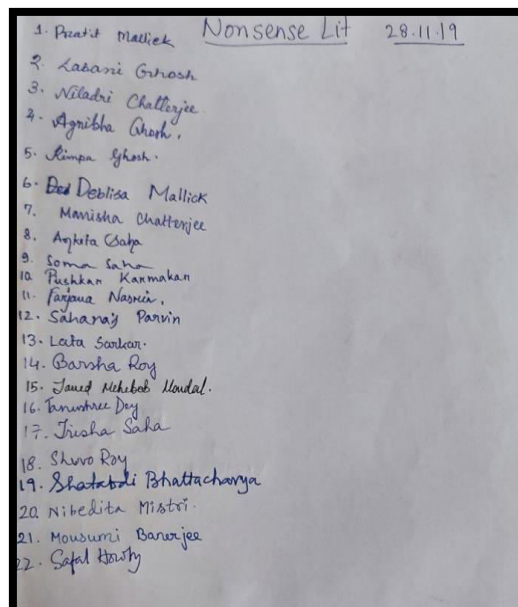 Nonsense Lit 28.11.19
1. Pratit Mallick
2. Labani Ghosh
3. Niladri Chatterjee
4. Agnibha Ghosh.
5. Rimpa Ghosh.
6. Deblisa Mallick
7. Manisha Chatterjee
8. Ankita Saha
9. Soma Saha
10. Pushkar Karmakar
11. Farjana Nasrin.
12. Sahanaj Parvin
13. Lata Sarkar.
14. Barsha Roy
15. Javed Mehebob Mondal.
16. Tanushree Dey
17. Trisha Saha
18. Shuvo Roy
19. Shatabdi Bhattacharya
20. Nibedita Mistri.
21. Mousumi Banerjee
22. Safal